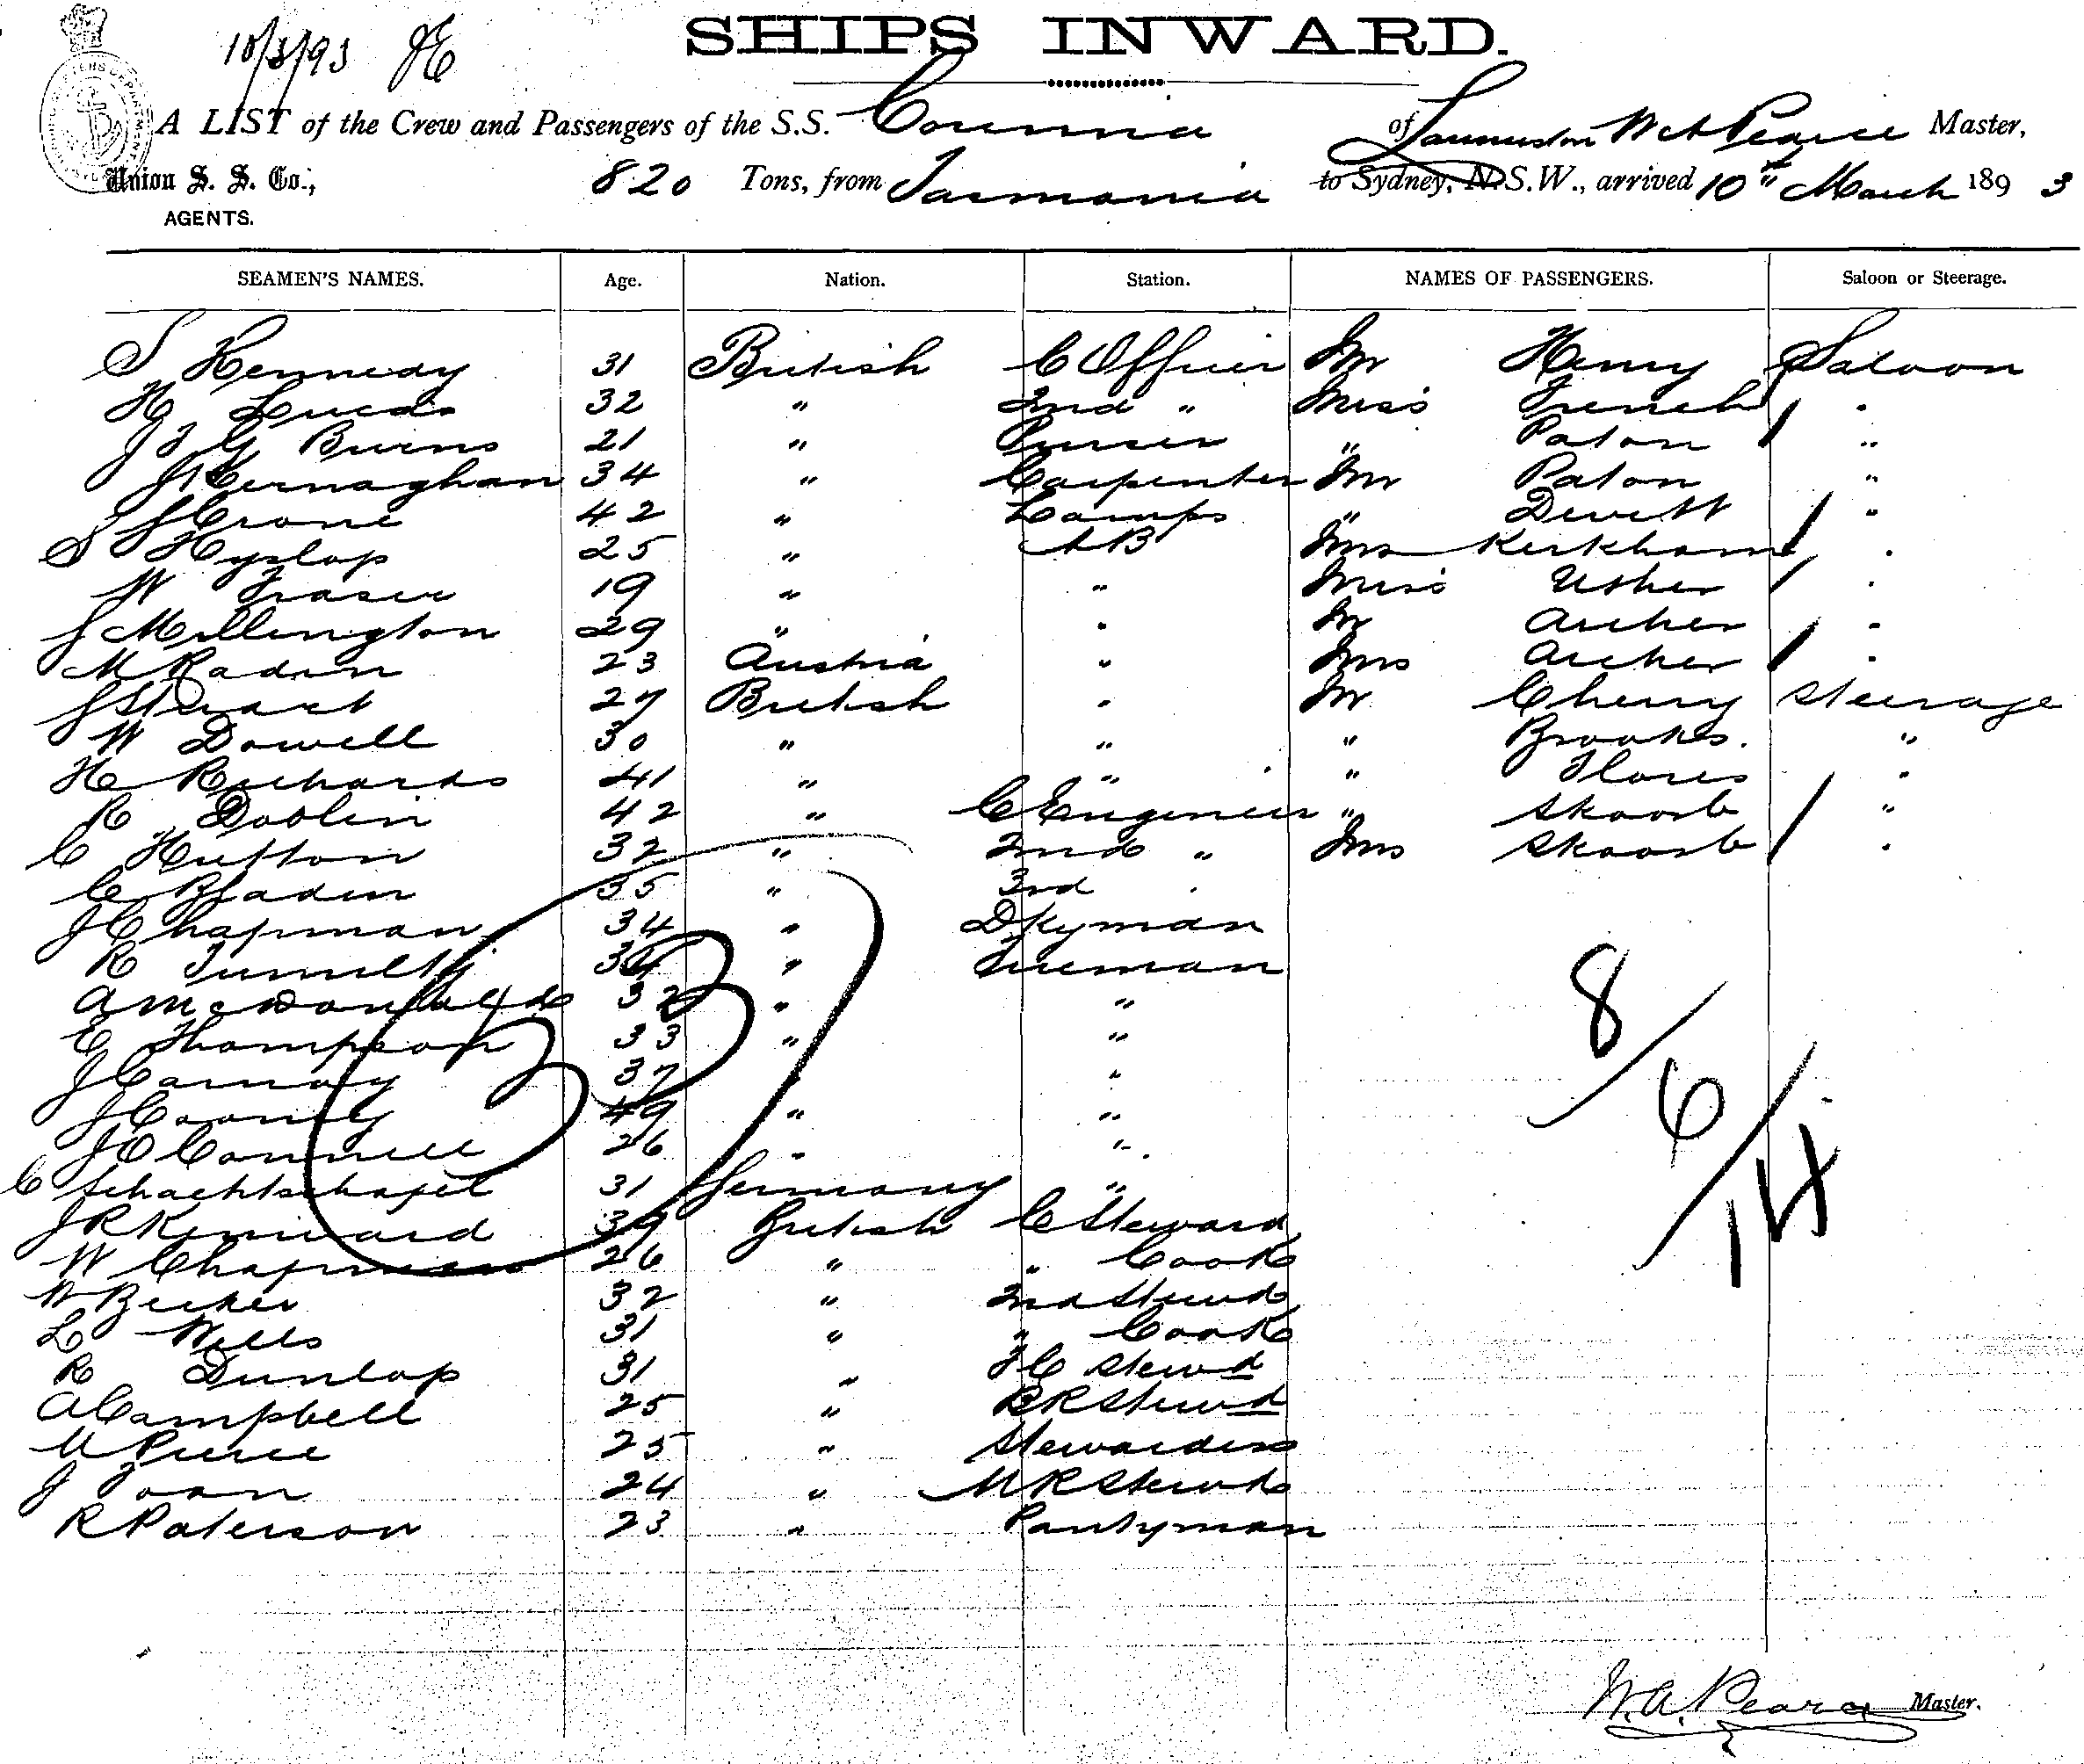 10/3/93 JE
SHIPS INWARD.
A LIST of the Crew and Passengers of the S.S. Corinna of Launceston W A Pearce Master,
Union S. S. Co., 820 Tons, from Tasmania to Sydney, N.S.W., arrived 10th March 1893
AGENTS.
SEAMEN'S NAMES. Age. Nation. Station. NAMES OF PASSENGERS. Saloon or Steerage.
S Kennedy 31 British C Officer Mr Henry Saloon
H Lucas 32 " 2nd " Miss French "
J F G Burns 21 " Purser " Paton "
J Kernaghan 34 " Carpenter Mr Paton "
J Crone 42 " Lamps " Dewitt "
S Hyslop 25 " AB Mrs Kirkham "
W Fraser 19 " " Miss Usher "
J Millington 29 " " Mr Archer "
M Radin 23 Austria " Mrs Archer "
J Stuart 27 British " Mr Cherry Steerage
W Dowell 30 " " " Brooks. "
H Richards 41 " " " Flores "
R Doblin 42 " C Engineer " Skoorb "
C Hutton 32 " 2nd " Mrs Skoorb "
C Bladin 35 " 3rd "
J Chapman 34 " Dkyman
R Tumilty 34 " Fireman
A McDonald 32 " "
E Thompson 33 " "
J Carnay 37 " "
J Coonly 49 " "
J O Connell 26 " "
C Schachtschapel 31 Germany "
J R Kenward 39 British C Steward
W Chapman 26 " " Cook
W Becker 32 " 2nd Stewd
L Wells 31 " " Cook
R Dunlop 31 " F C Stewd
A Campbell 25 " B R Stewd
M Pierce 25 " Stewardess
J Zoan 24 " M R Stewd
R Paterson 23 " Pantyman
33
8/6/14
W. A. Pearce Master.